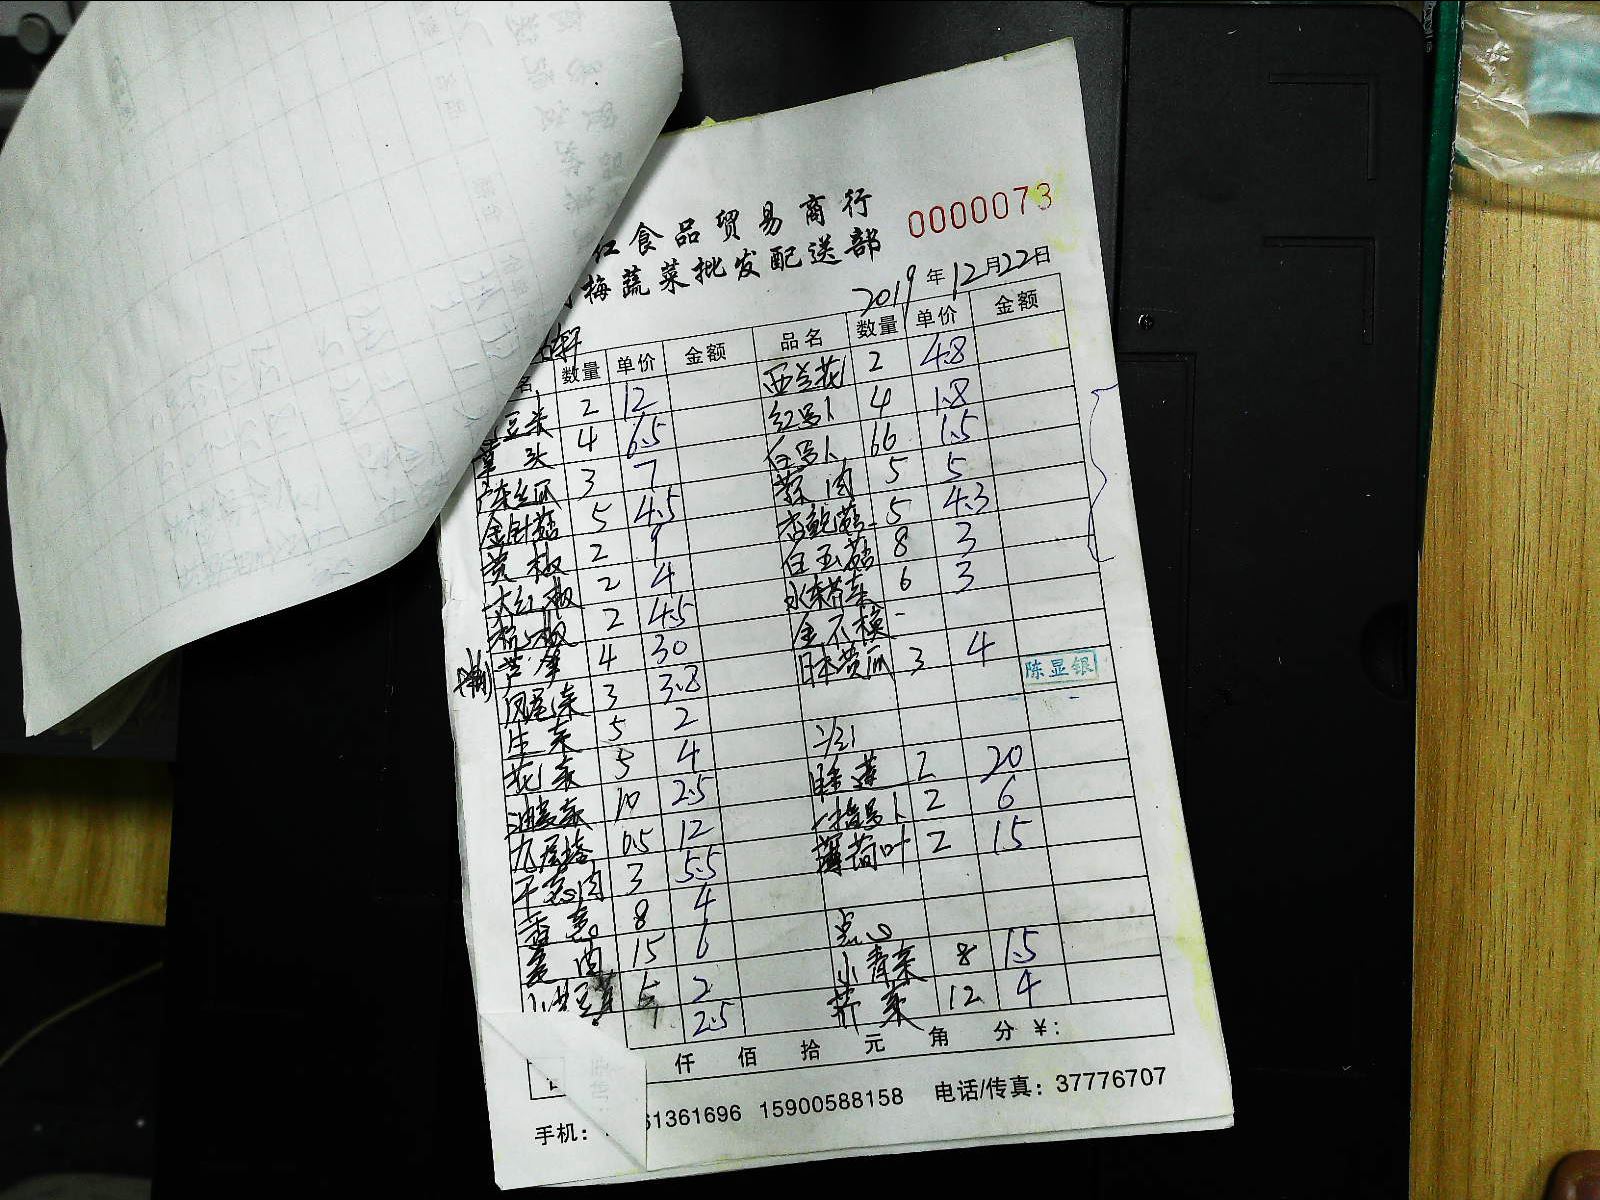 红食品贸易商行
梅蔬菜批发配送部
0000073
2019年12月22日
名 数量 单价 金额 品名 数量 单价 金额
豆米 2 12 西兰花 2 4.8
头 4 6.5 红罗卜 4 1.8
丝瓜 3 7 白罗卜 66 1.5
金针菇 5 4.5 蒜肉 5 5
黄椒 2 9 杏鲍菇 5 4.3
大红椒 2 4 白玉菇 8 3
2 4.5 水菜 6 3
芦笋 4 30 金不换
凤尾菜 3 3.8 日本黄瓜 3 4
生菜 5 2
花菜 5 4
油麦菜 10 2.5 睡莲 2 20
九层塔 0.5 12 罗卜 2 6
干葱肉 3 5.5 薄荷叶 2 15
香葱 8 4
姜肉 15 6 点心
5 2 小青菜 8 1.5
2.5 荠菜 12 4
陈显银
仟 佰 拾 元 角 分 ¥:
手机: 61361696 15900588158 电话/传真: 37776707